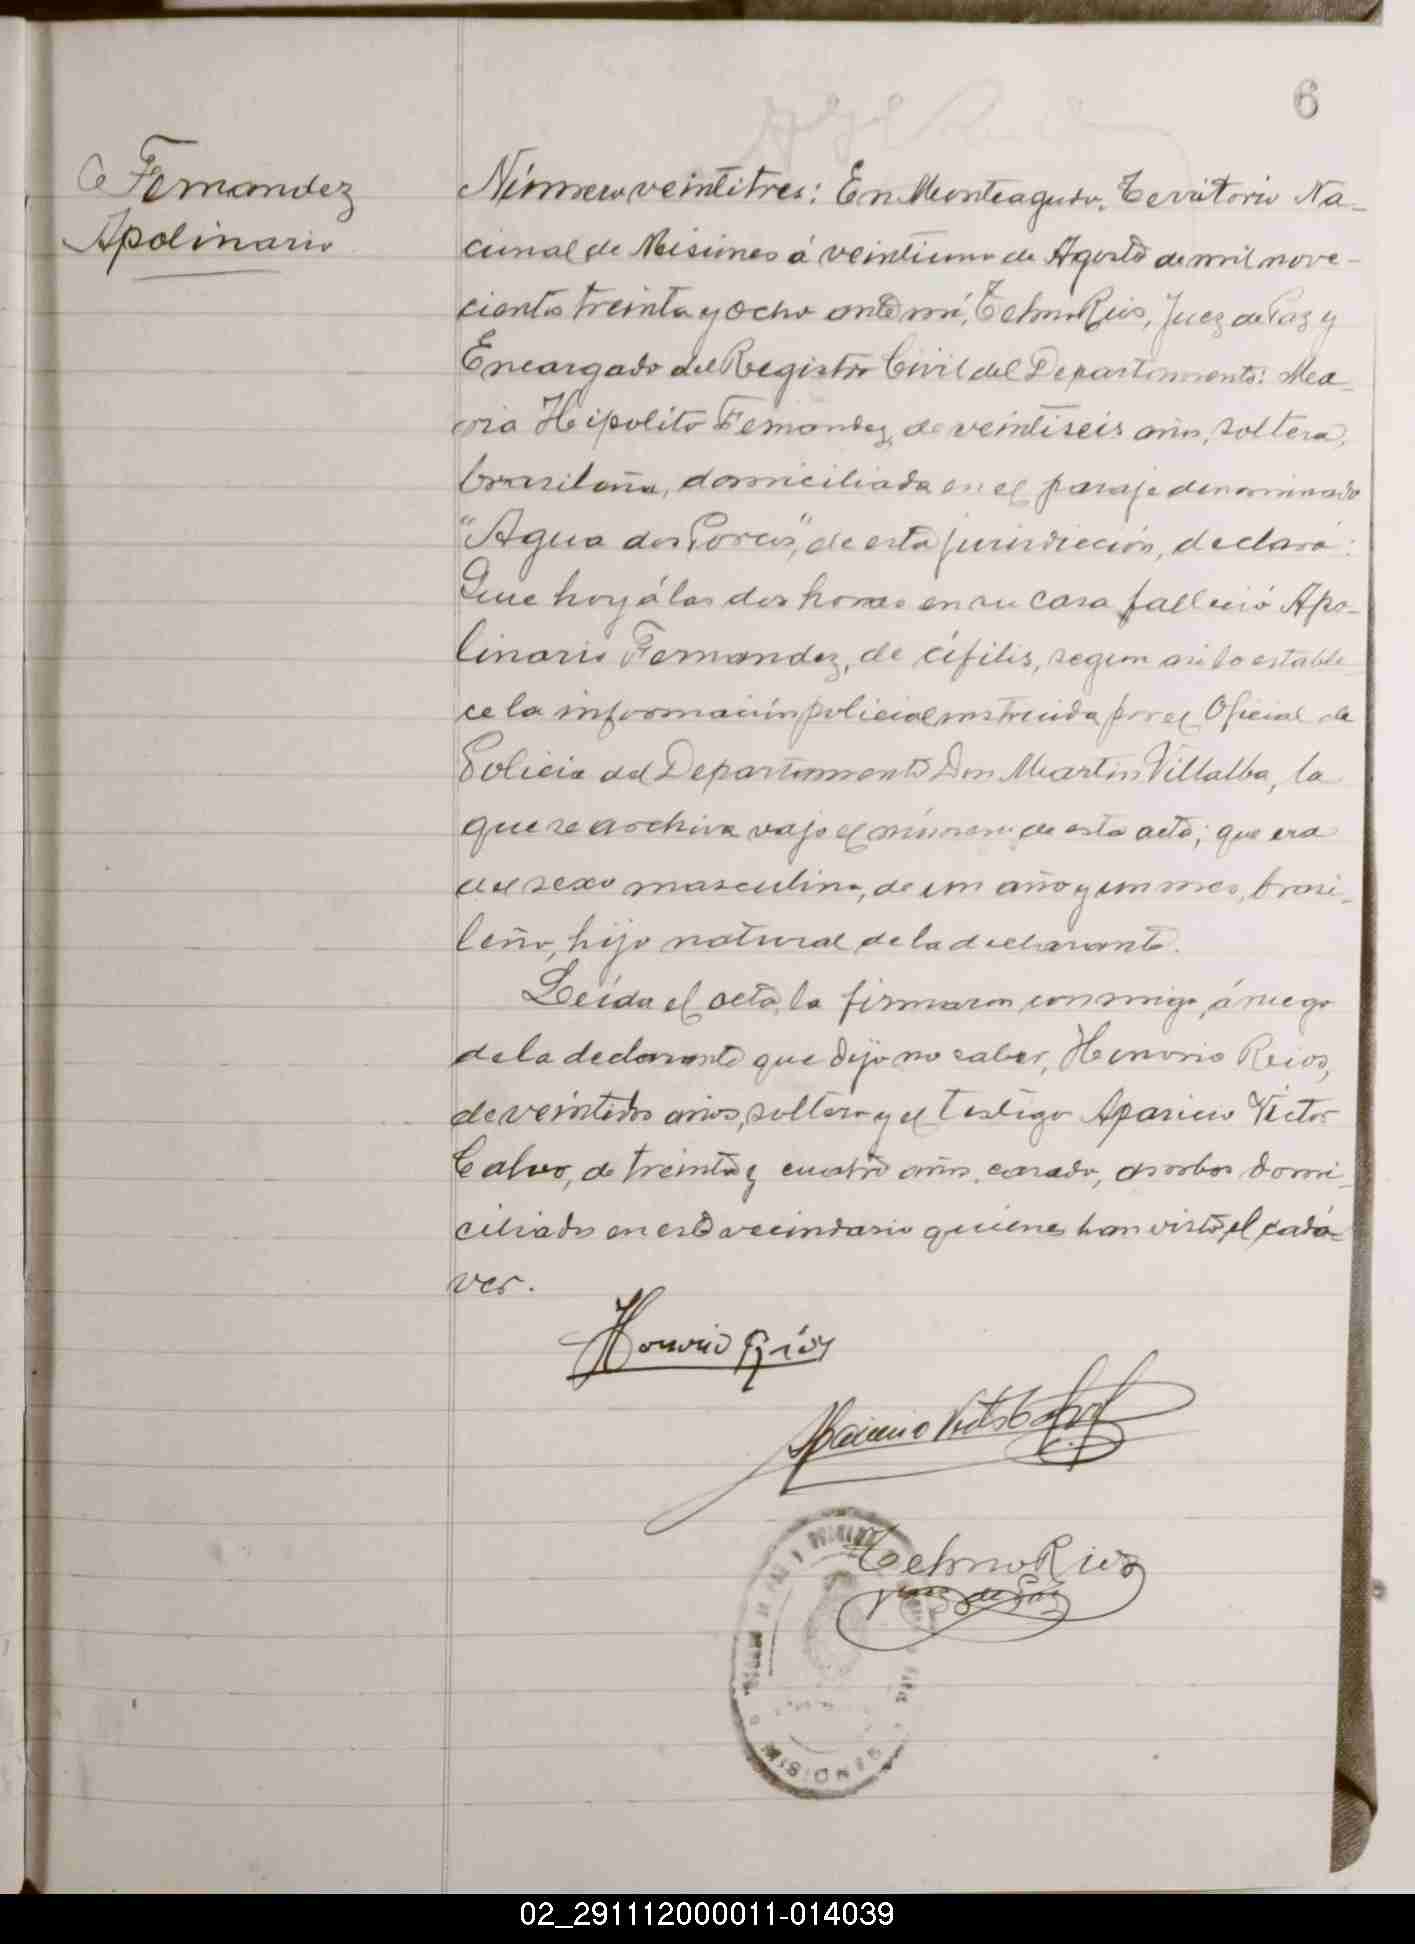 6
Fernandez
Apolinario
Número veintitres: En Monteagudo, Territorio Na-
cional de Misiones á veintiuno de Agosto de mil nove-
cientos treinta y ocho ante mí, Telmo Rios, Juez de Paz y
Encargado del Registro Civil del Departamento: Ma-
ria Hipolita Fernandez, de veintiseis años, soltera,
brasileña, domiciliada en el paraje denominado
"Agua dos Porcos", de esta jurisdicción, declaró:
Que hoy á las dos horas en su casa falleció Apo-
linario Fernandez, de cífilis, segun asi lo estable-
ce la información policial instruida por el Oficial de
Policia del Departamento Don Martin Villalba, la
que se archiva vajo el número de esta acta; que era
del sexo masculino, de un año y un mes, brasi-
leño, hijo natural de la declarante.
Leída el acta, la firmaron conmigo, á ruego
de la declarante que dijo no saber, Honorio Rios,
de veintidos años, soltero y el testigo Aparicio Victor
Calvo, de treinta y cuatro años, casado, ambos domi-
ciliados en este vecindario quienes han visto el cadá-
ver.
Honorio Ríos
Aparicio Victor Calvo
Telmo Rios
Juez de Paz
MISIONES
02_291112000011-014039